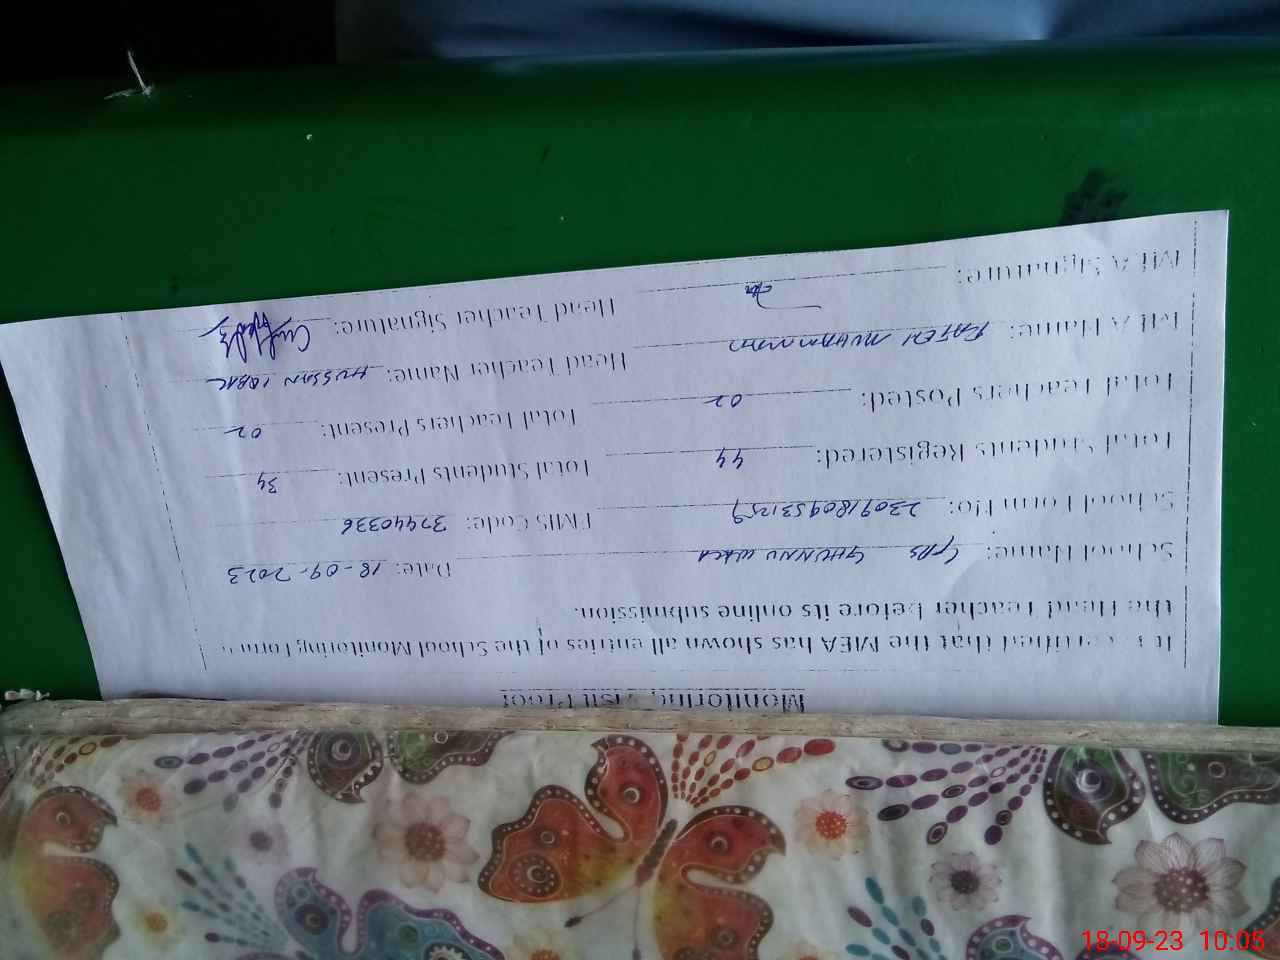 Monitoring Visit Proof
It is certified that the MEA has shown all entries of the School Monitoring Form to
the Head Teacher before its online submission.
School Name: GPS GHUNNU WALA Date: 18-09-2023
School Form No: 23091809531259 EMIS Code: 37440336
Total Students Registered: 44 Total Students Present: 34
Total Teachers Posted: 02 Total Teachers Present: 02
MEA Name: FATEH MUHAMMAD Head Teacher Name: HUSSAN IQBAL
MEA Signature: Head Teacher Signature:
18-09-23 10:05